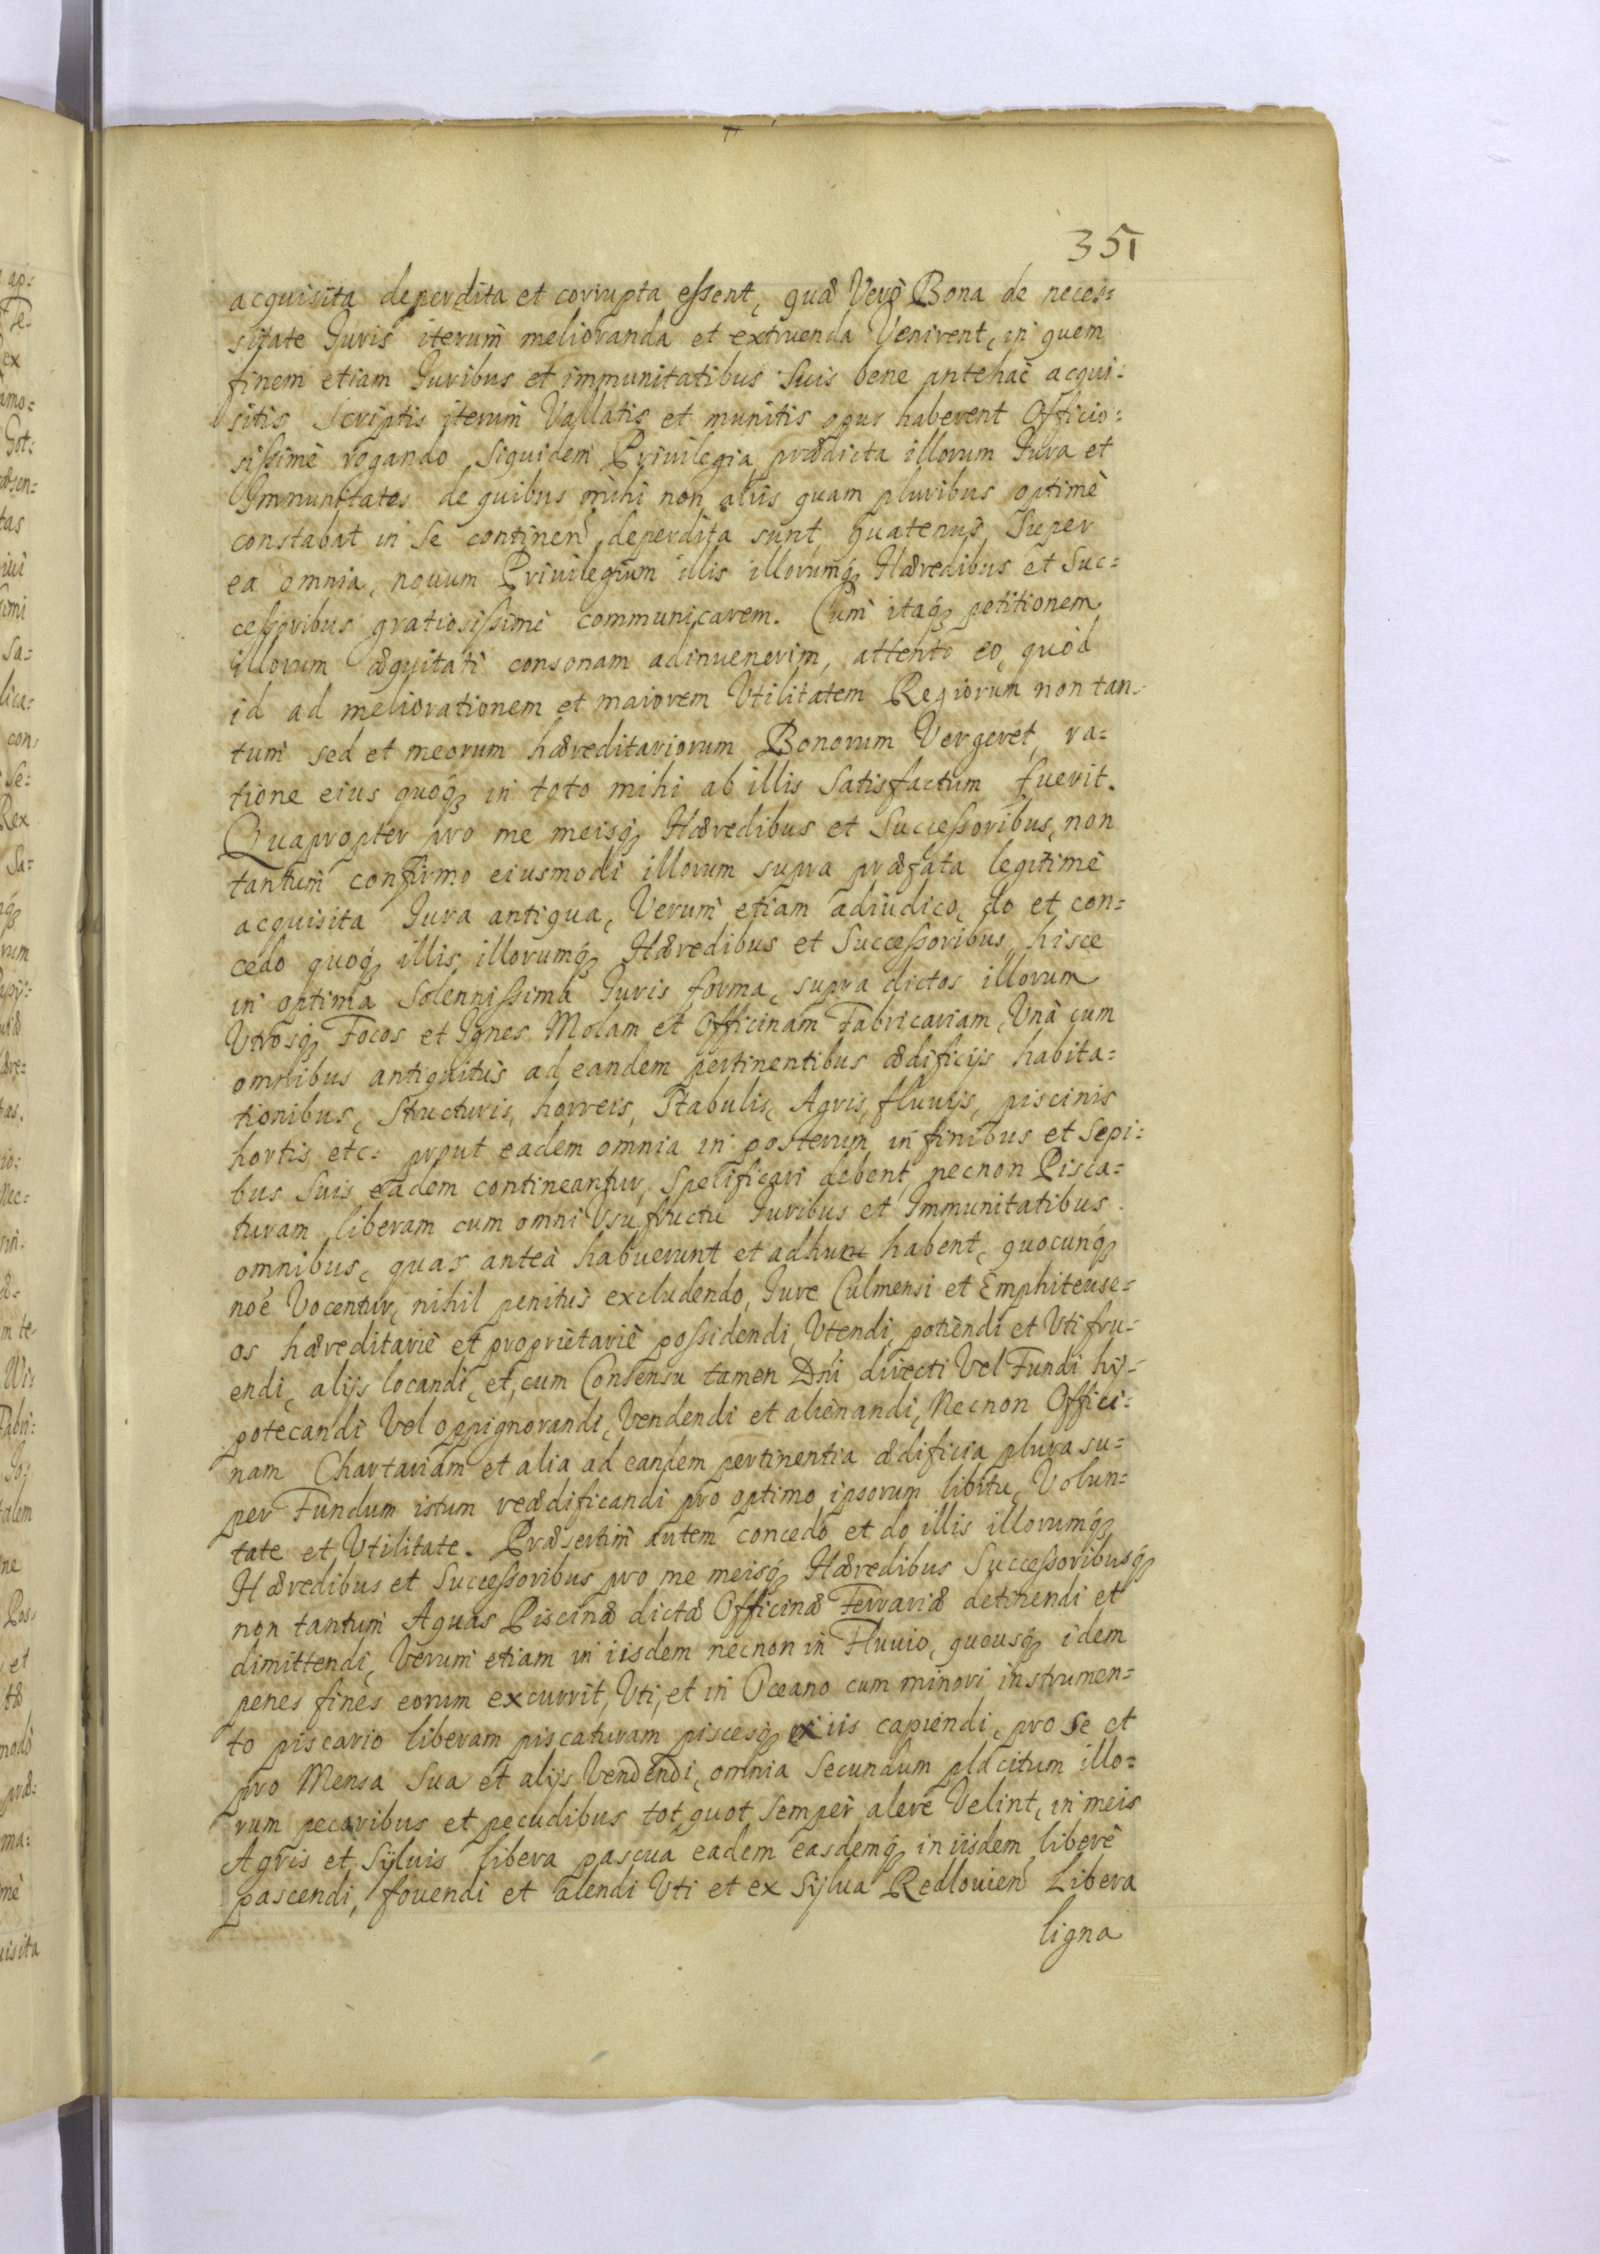 351
acquisita deperdita et corrupta essent, quæ Verò Bona de neces=
sitate Iuris iterum melioranda et extruenda Venirent, in quem
finem etiam Iuribus et immunitatibus Suis bene antehac acqui=
sitis Scriptis iterum Vallatis et munitis opus haberent Officio=
sissimè rogando, Siquidem Privilegia prædicta illorum Iura et
Immunitates de quibus mihi non aliis quam pluribus optimè
constabat in Se continen deperdita sunt, quatenus Super
ea omnia, nouum Priuilegium illis illorumq́ Hæredibus et Suc=
cessoribus gratiosissimè communicarem. Cum itaq́ petitionem
illorum æquitati consonam adinuenerim, attento eo, quòd
id ad meliorationem et maiorem Vtilitatem Regiorum non tan=
tum sed et meorum hæreditariorum Bonorum Vergeret, ra=
tione eius quoq́ in toto mihi ab illis Satisfactum fuerit.
Quapropter pro me meisq́ Hæredibus et Successoribus, non
tantum confirmo eiusmodi illorum supra præfata legitimè
acquisita Iura antiqua, Verum etiam adiudico, do et con=
cedo quoq́ illis, illorumq́ Hæredibus et Successoribus, hisce
in optima Solennissima Iuris forma, supra dictos illorum
Utrosq́ Focos et Ignes Molam et Officinam Fabricariam, Vnà cum
omnibus antiquitùs ad eandem pertinentibus ædificijs habita=
tionibus, Structuris, horreis, Stabulis, Agris, fluuijs, piscinis
hortis etc= prout eadem omnia in posterum in finibus et Sepi=
bus Suis eadem contineantur, Specificari debent, necnon Pisca=
turam liberam cum omni Vsufructu Iuribus et Immunitatibus
omnibus, quas anteà habuerunt et adhuc habent, quocunq́
noé Vocentur, nihil penitùs excludendo, Iure Culmensi et Emphiteuse=
os hæreditariè et proprietariè possidendi, Vtendi, potiendi et Vti fru=
endi, alijs locandi, et, cum Consensu tamen Dńi directi Vel Fundi hy=
potecandi Vel oppignorandi, Vendendi et alienandi, Necnon Offici=
nam Chartariam et alia ad eandem pertinentia ædificia plura su=
per Fundum istum reædificandi pro optimo ipsorum libitu, Volun=
tate et Vtilitate. Præsertim autem concedo et do illis illorumq́
Hæredibus et Successoribus pro me meisq́ Hæredibus Successoribusq́
non tantum Aquas Piscinæ dictæ Officinæ Ferrariæ detinendi et
dimittendi, Verum etiam in iisdem necnon in Fluuio, quousq́ idem
penes fines eorum excurrit, Vti, et in Oceano cum minori instrumen=
to piscario liberam piscaturam piscesq́ ex iis capiendi, pro Se et
pro Mensa Sua et alijs Vendendi, omnia Secundum placitum illo=
rum pecoribus et pecudibus tot, quot Semper alere Velint, in meis
Agris et Syluis libera pascua eadem easdemq́ in iisdem liberè
pascendi, fouendi et alendi Vti et ex Sylua Redlouien Libera
ligna